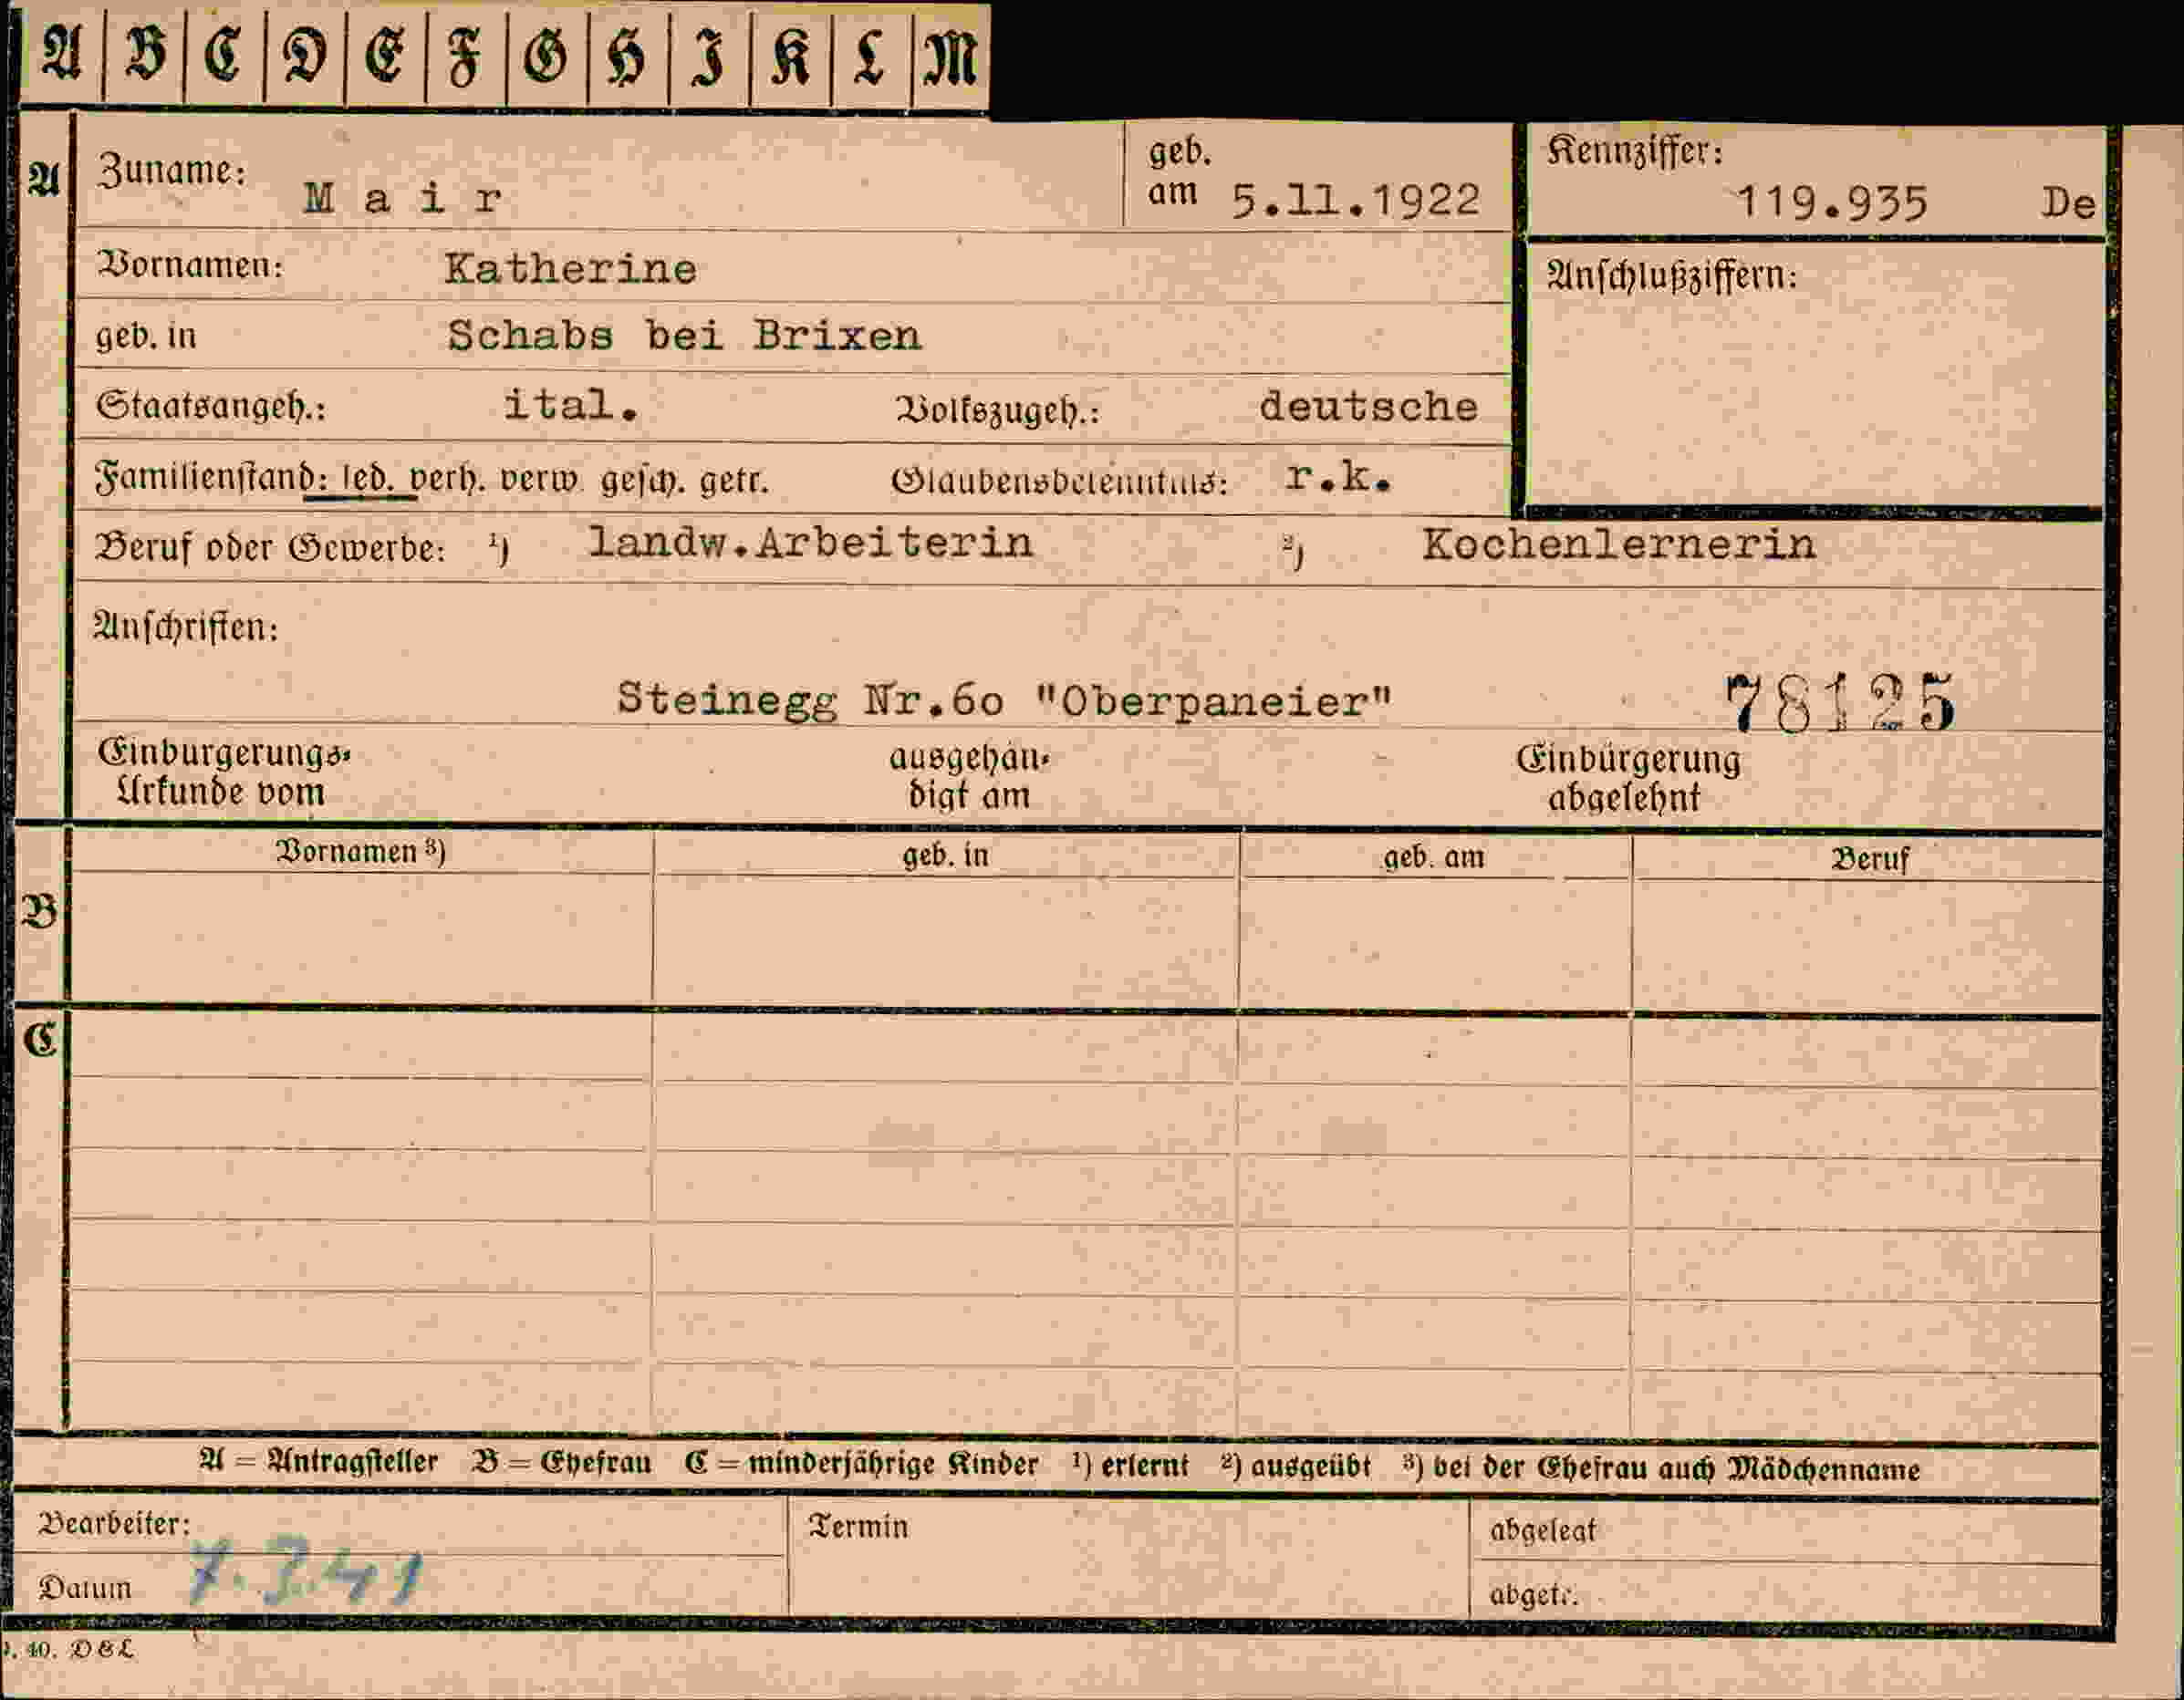 A B C D E F G H I K L M
A Zuname: Mair geb. am 5.11.1922 Kennziffer: 119.935 De
Vornamen: Katherine Anschlußziffern:
geb. in Schabs bei Brixen
Staatsangeh.: ital. Volkszugeh.: deutsche
Familienstand: led. verh. verw. gesch. getr. Glaubensbekenntnis: r.k.
Beruf oder Gewerbe: ¹) landw.Arbeiterin ²) Kochenlernerin
Anschriften:
Steinegg Nr.60 "Oberpaneier" 78125
Einbürgerungs-Urkunde vom ausgehändigt am Einbürgerung abgelehnt
Vornamen ³) geb. in geb. am Beruf
B
C
A = Antragsteller B = Ehefrau C = minderjährige Kinder ¹) erlernt ²) ausgeübt ³) bei der Ehefrau auch Mädchenname
Bearbeiter: Termin abgelegt
Datum 7.3.41 abgetr.
40. DBL